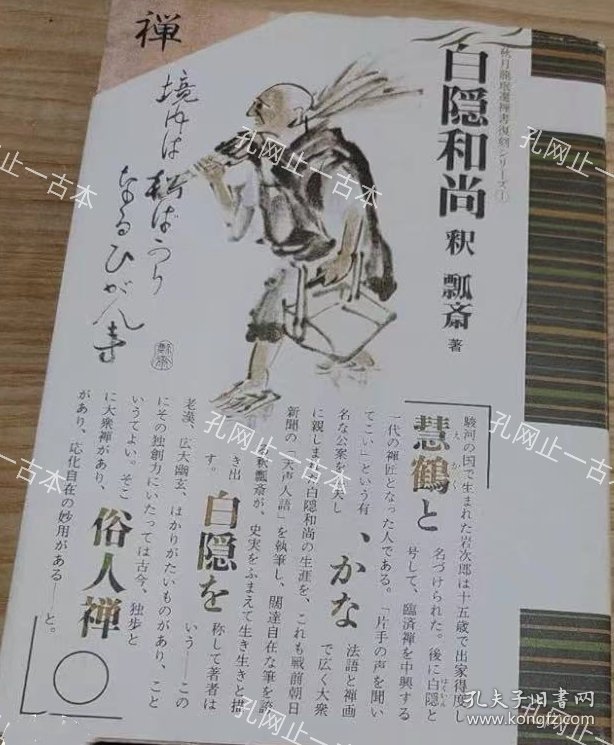 禅
秋月龍珉選禅書復刻シリーズ①
白隠和尚
釈 瓢斎 著
境内は
松ばつり
なるひがん寺
駿河の国で生まれた岩次郎は十五歳で出家得度し
慧鶴と
えかく
名づけられた。後に白隠と
はくいん
号して、臨済禅を中興する
一代の禅匠となった人である。「片手の声を聞い
てこい」という有
名な公案を
、かな
法語と禅画
で広く大衆
に親しまれた白隠和尚の生涯を、これも戦前朝日
新聞の「天声人語」を執筆し、闊達自在な筆を
釈瓢斎が、史実をふまえて生き生きと描
き出
す。
白隠を
称して著者は
いう――この
老漢、広大幽玄、はかりがたいものがあり、こと
にその独創力にいたっては古今、独歩と
いうてよい。そこ
に大衆禅があり、
俗人禅
があり、応化自在の妙用がある――と。
孔网止一古本
孔网止一古本
孔网止一古本
孔网止一古本
孔网止一古本
孔网止一古本
孔夫子旧书网
www.kongfz.com